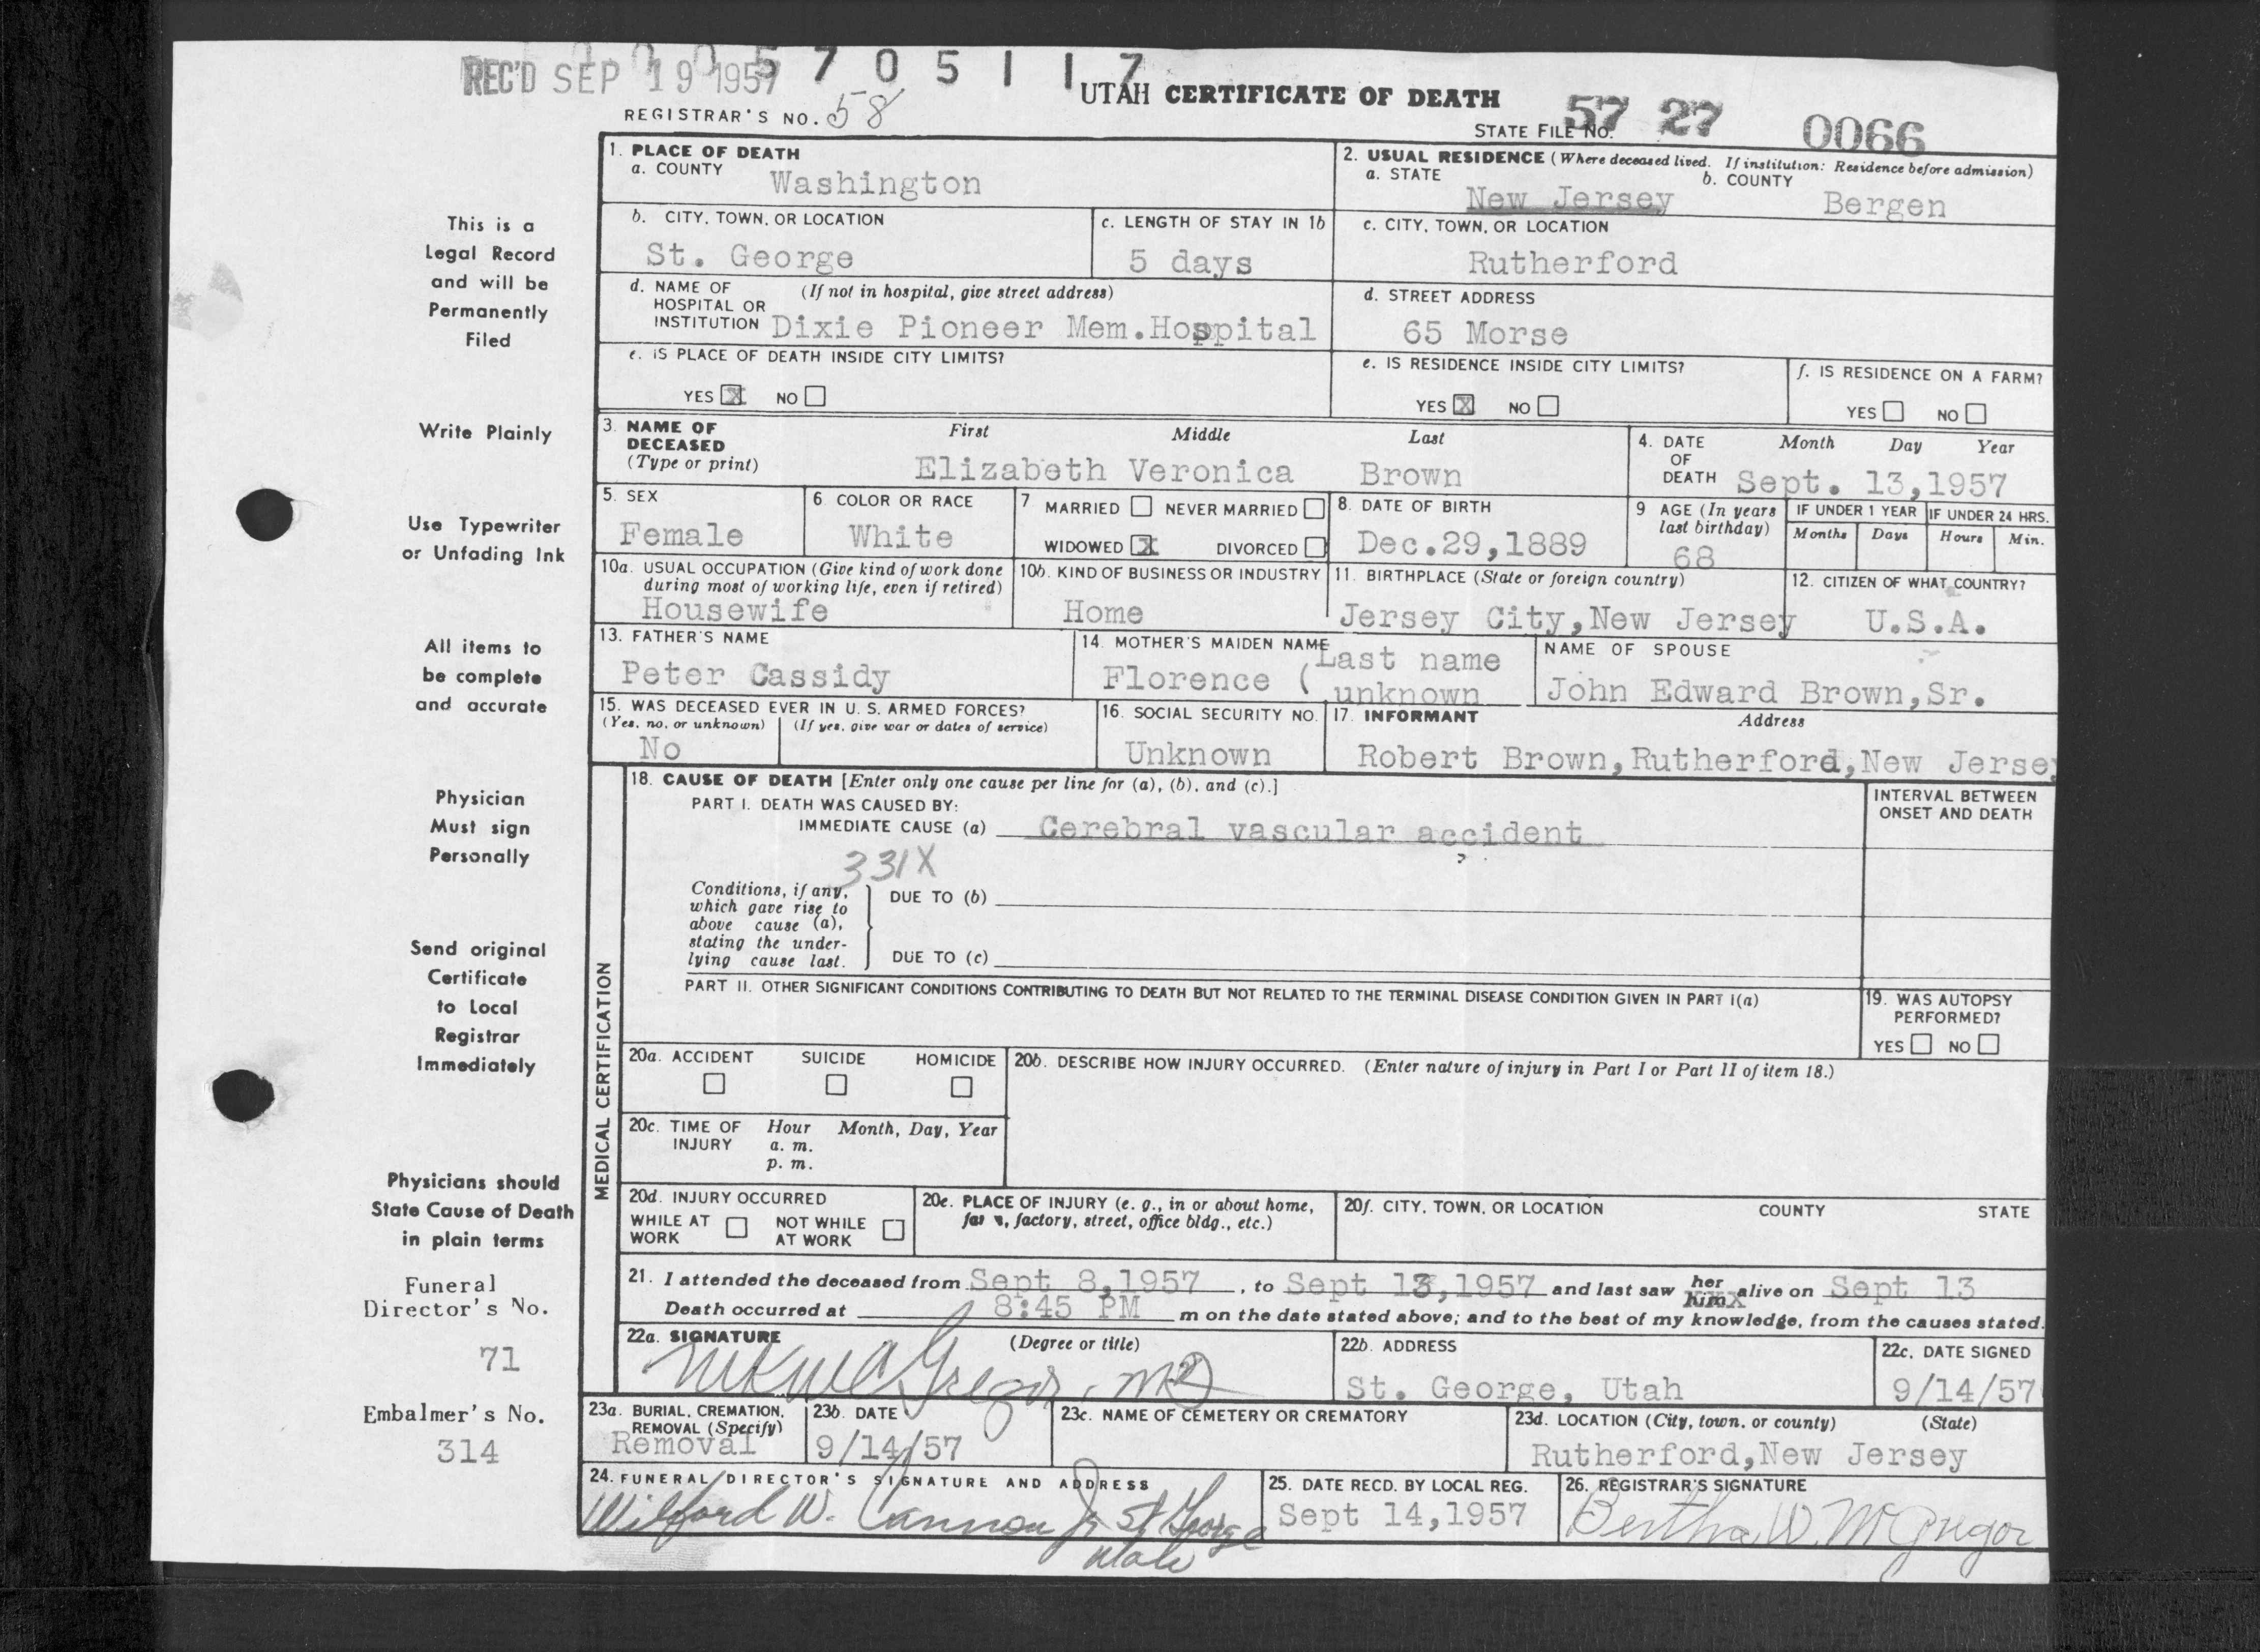 REC'D SEP 19 1957
5 7 0 5 1 1 7
UTAH CERTIFICATE OF DEATH
REGISTRAR'S NO. 58
STATE FILE NO. 57 27 0066
This is a
Legal Record
and will be
Permanently
Filed
Write Plainly
Use Typewriter
or Unfading Ink
All items to
be complete
and accurate
Physician
Must sign
Personally
Send original
Certificate
to Local
Registrar
Immediately
Physicians should
State Cause of Death
in plain terms
Funeral
Director's No.
71
Embalmer's No.
314
1. PLACE OF DEATH
a. COUNTY Washington
2. USUAL RESIDENCE (Where deceased lived. If institution: Residence before admission)
a. STATE New Jersey b. COUNTY Bergen
b. CITY, TOWN, OR LOCATION
St. George
c. LENGTH OF STAY IN 1b
5 days
c. CITY, TOWN, OR LOCATION
Rutherford
d. NAME OF (If not in hospital, give street address)
HOSPITAL OR
INSTITUTION Dixie Pioneer Mem.Hospital
d. STREET ADDRESS
65 Morse
e. IS PLACE OF DEATH INSIDE CITY LIMITS?
YES X NO
e. IS RESIDENCE INSIDE CITY LIMITS?
YES X NO
f. IS RESIDENCE ON A FARM?
YES NO
3. NAME OF First Middle Last
DECEASED
(Type or print) Elizabeth Veronica Brown
4. DATE Month Day Year
OF
DEATH Sept. 13,1957
5. SEX
Female
6. COLOR OR RACE
White
7 MARRIED NEVER MARRIED
WIDOWED X DIVORCED
8. DATE OF BIRTH
Dec.29,1889
9 AGE (In years
last birthday)
68
IF UNDER 1 YEAR
Months Days
IF UNDER 24 HRS.
Hours Min.
10a. USUAL OCCUPATION (Give kind of work done
during most of working life, even if retired)
Housewife
10b. KIND OF BUSINESS OR INDUSTRY
Home
11. BIRTHPLACE (State or foreign country)
Jersey City,New Jersey
12. CITIZEN OF WHAT COUNTRY?
U.S.A.
13. FATHER'S NAME
Peter Cassidy
14. MOTHER'S MAIDEN NAME
Last name
Florence (
unknown
NAME OF SPOUSE
John Edward Brown,Sr.
15. WAS DECEASED EVER IN U. S. ARMED FORCES?
(Yes, no, or unknown) (If yes, give war or dates of service)
No
16. SOCIAL SECURITY NO.
Unknown
17. INFORMANT Address
Robert Brown,Rutherford,New Jersey
MEDICAL CERTIFICATION
18. CAUSE OF DEATH [Enter only one cause per line for (a), (b), and (c).]
PART I. DEATH WAS CAUSED BY:
IMMEDIATE CAUSE (a) Cerebral vascular accident
INTERVAL BETWEEN
ONSET AND DEATH
331X
Conditions, if any,
which gave rise to
above cause (a),
stating the under-
lying cause last.
DUE TO (b)
DUE TO (c)
PART II. OTHER SIGNIFICANT CONDITIONS CONTRIBUTING TO DEATH BUT NOT RELATED TO THE TERMINAL DISEASE CONDITION GIVEN IN PART I(a)
19. WAS AUTOPSY
PERFORMED?
YES NO
20a. ACCIDENT SUICIDE HOMICIDE
20b. DESCRIBE HOW INJURY OCCURRED. (Enter nature of injury in Part I or Part II of item 18.)
20c. TIME OF Hour Month, Day, Year
INJURY a. m.
p. m.
20d. INJURY OCCURRED
WHILE AT NOT WHILE
WORK AT WORK
20e. PLACE OF INJURY (e. g., in or about home,
farm, factory, street, office bldg., etc.)
20f. CITY, TOWN, OR LOCATION COUNTY STATE
21. I attended the deceased from Sept 8,1957, to Sept 13,1957 and last saw her him alive on Sept 13
Death occurred at 8:45 PM m on the date stated above; and to the best of my knowledge, from the causes stated.
22a. SIGNATURE (Degree or title)
McGregor, MD
22b. ADDRESS
St. George, Utah
22c. DATE SIGNED
9/14/57
23a. BURIAL, CREMATION,
REMOVAL (Specify)
Removal
23b. DATE
9/14/57
23c. NAME OF CEMETERY OR CREMATORY
23d. LOCATION (City, town, or county) (State)
Rutherford,New Jersey
24. FUNERAL DIRECTOR'S SIGNATURE AND ADDRESS
Wilford W. Cannon Jr St George
Utah
25. DATE RECD. BY LOCAL REG.
Sept 14,1957
26. REGISTRAR'S SIGNATURE
Bertha W. McGregor